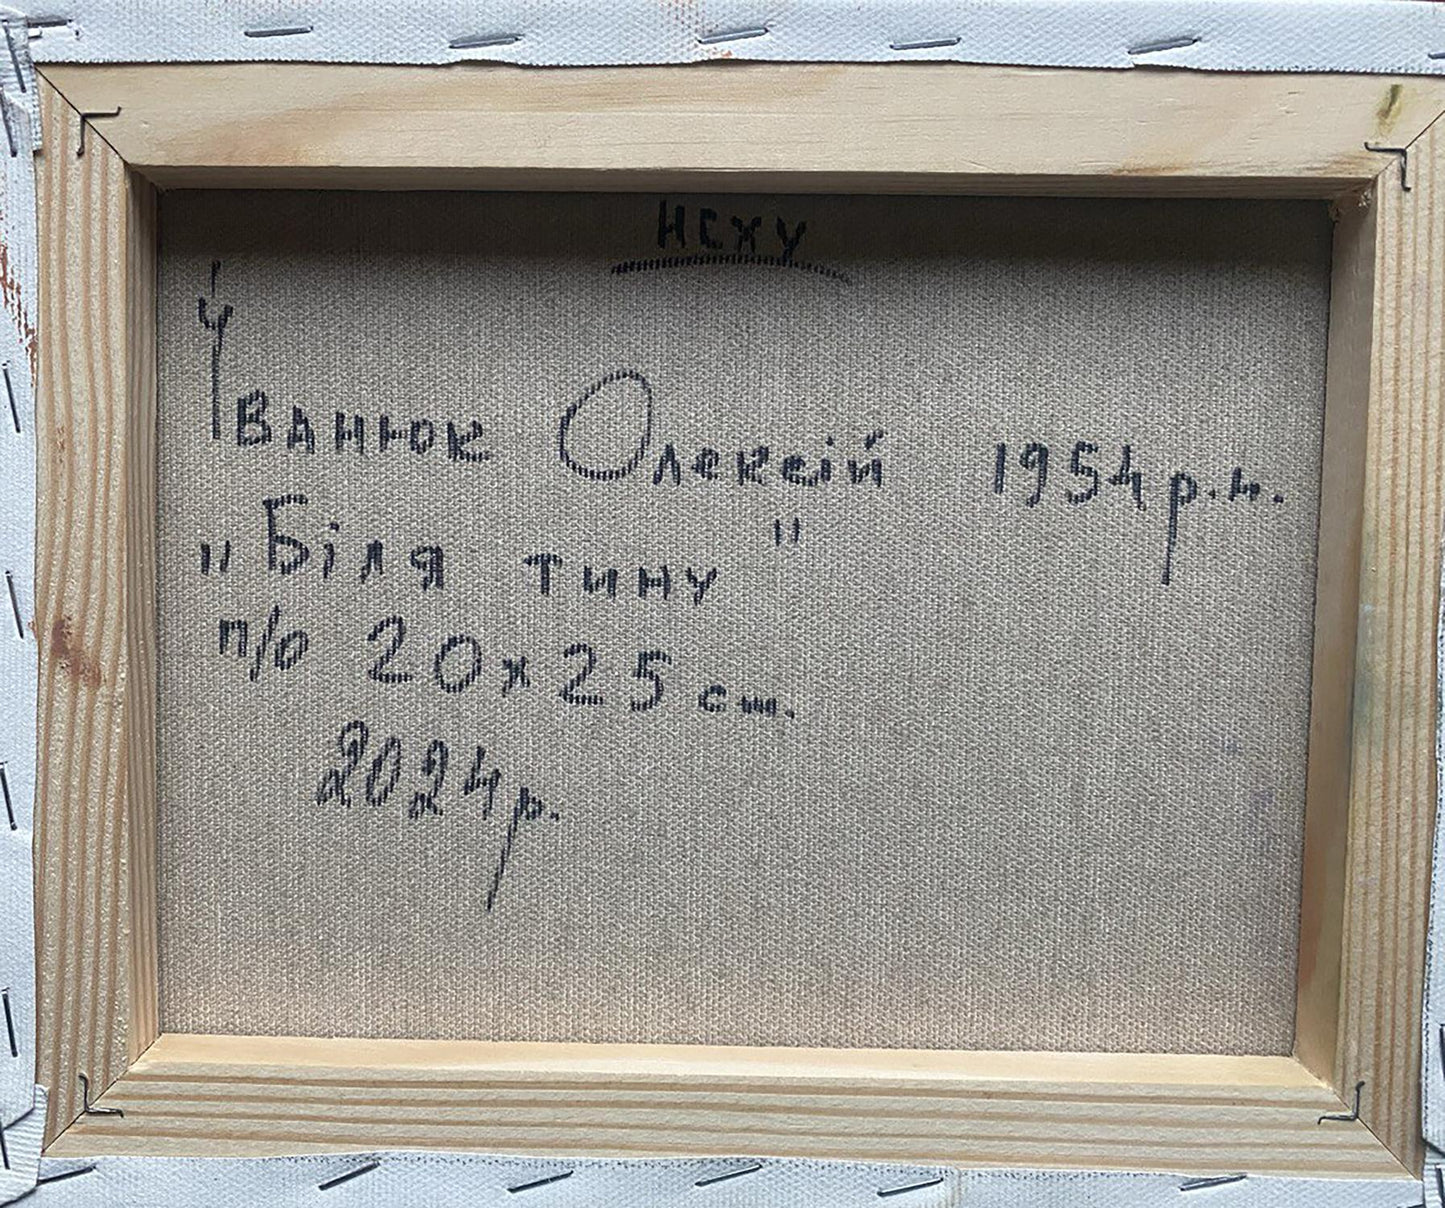 НСХУ
Іванюк Олексій 1954 р.н.
„Біля тину"
п/о 20x25 см.
2024р.